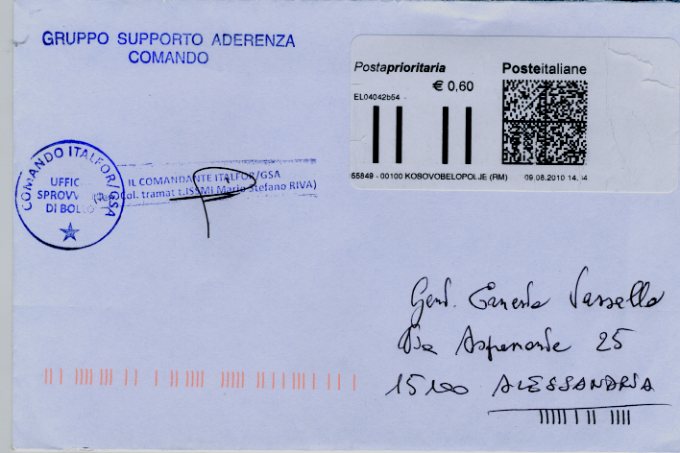 GRUPPO SUPPORTO ADERENZA
COMANDO
Postaprioritaria
Posteitaliane
€ 0,60
EL04042b54
55849 - 00100 KOSOVOBELOPOLJE (RM) 09.08.2010 14.
COMANDO ITALFOR/GSA
UFFIC
SPROVV
DI BOL
IL COMANDANTE ITALFOR/GSA
Col. tramat t.ISSMI Mario Stefano RIVA)
Gent. Vassallo
Via Aspromonte 25
15100 ALESSANDRIA